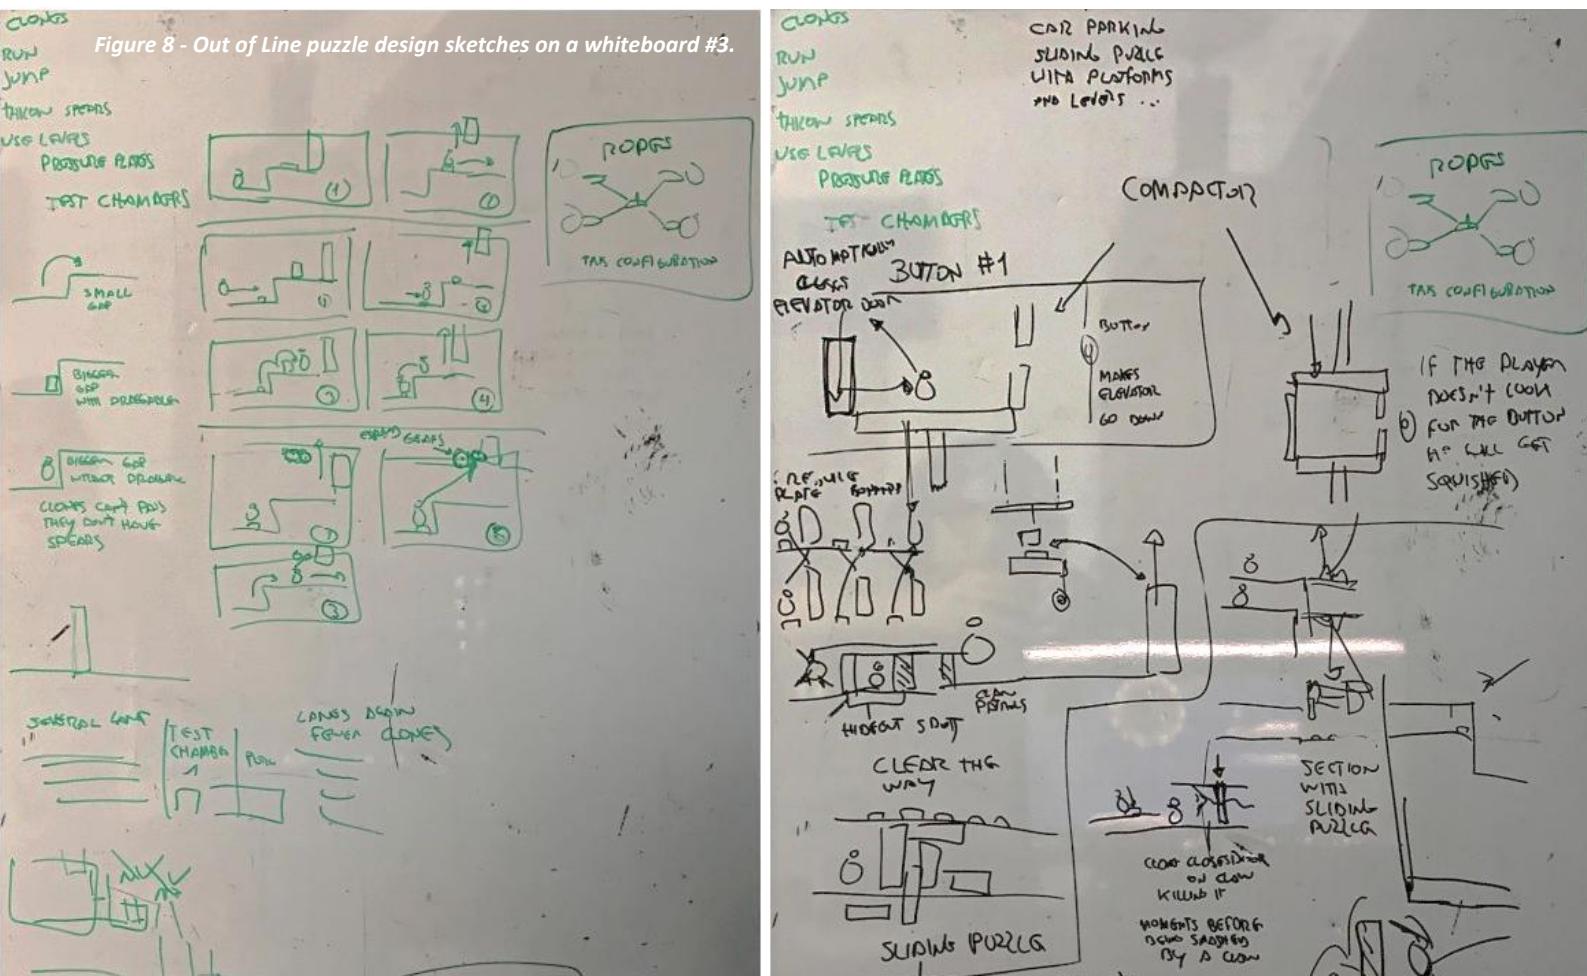 Figure 8 - Out of Line puzzle design sketches on a whiteboard #3.
CLONES
RUN
JUMP
THROW SPEARS
USE LEVERS
PRESSURE PLATES
TEST CHAMBERS
ROPES
CONFIGURATION
SMALL
GAP
BIGGER
GAP
WITH DRAGGABLE
BIGGER GAP
WITHOUT DRAGGABLE
CLONES CAN'T PASS
THEY DON'T HAVE
SPEARS
GEARS
SEVERAL
TEST
CHAMBER
LANES AGAIN
FEWER CLONES
CLONES
RUN
JUMP
THROW SPEARS
USE LEVERS
PRESSURE PLATES
CHAMBERS
CAR PARKING
SLIDING PUZZLE
WITH PLATFORMS
AND LEVERS ...
COMPACTOR
ROPES
CONFIGURATION
AUTOMATICALLY
CLOSES
ELEVATOR DOOR
BUTTON #1
BUTTON
MAKES
ELEVATOR
GO DOWN
IF THE PLAYER
DOESN'T LOOK
FOR THE BUTTON
HE WILL GET
SQUISHED
PLATE
CLAW
PATROLS
HIDEOUT SPOT
CLEAR THE
WAY
SLIDING PUZZLE
SECTION
WITH
SLIDING
PUZZLE
CLONE CLOSES DOOR
ON CLAW
KILLING IT
MOMENTS BEFORE
BEING SMASHED
BY A CLAW